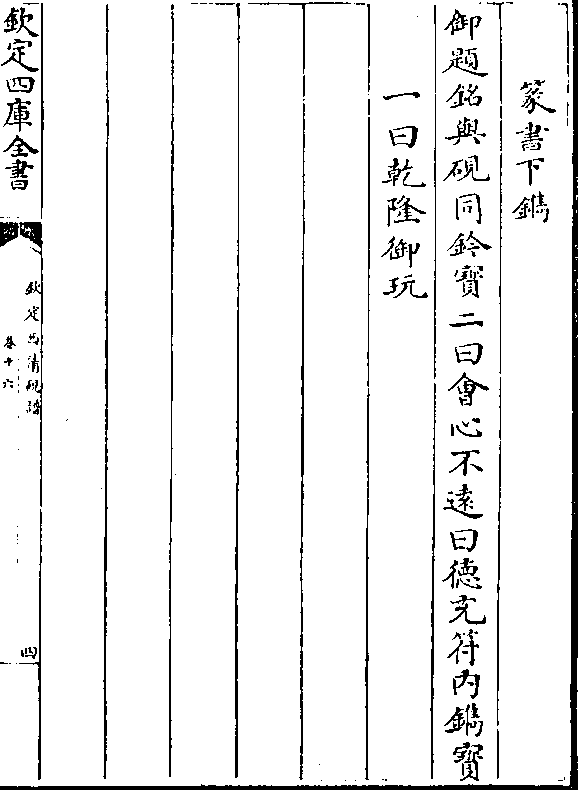 篆書下鐫
御題銘與硯同鈐寳二曰會心不逺曰德充符内鐫寳
一曰乾隆御玩
欽定四庫全書
欽定西清硯譜
卷十六
四